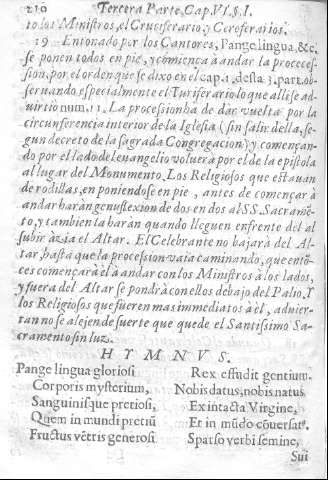 210 Tercera Parte, Cap. VI. §. I.
to los Ministros, el Cruciferario, y Ceroferarios.
19 Entonado por los Cantores, Pange lingua, &c.
se ponen todos en pie, y comença à andar la proces-
sion, por el orden que se dixo en el cap. 1. desta 3. part. ob-
seruando especialmente el Turiferario lo que alli se ad-
uirtio num. 11. La procession ha de dar vuelta por la
circunferencia interior de la Iglesia (sin salir della, se-
gun decreto de la sagrada Congregacion) y començan-
do por el lado del euangelio voluerà por el de la epistola
al lugar del Monumento. Los Religiosos que estauan
de rodillas, en poniendose en pie, antes de començar à
andar haràn genuflexion de dos en dos al SS. Sacramē-
to, y tambien la haràn quando lleguen enfrente del al
subir àzia el Altar. El Celebrante no bajarà del Al-
tar, hasta que la procession vaia caminando, que entō-
ces començarà èl à andar con los Ministros à los lados,
y fuera del Altar se pondrà con ellos debajo del Palio. Y
los Religiosos que fueren mas immediatos à èl, aduier-
tan no se alejen de suerte que quede el Santissimo Sa-
cramento sin luz.
HYMNVS.
Pange lingua gloriosi
Corporis mysterium,
Sanguinisque pretiosi,
Quem in mundi pretiū
Fructus vētris generosi
Rex effudit gentium.
Nobis datus, nobis natus
Ex intacta Virgine,
Et in mūdo cōuersatꝰ.
Sparso verbi semine,
Sui